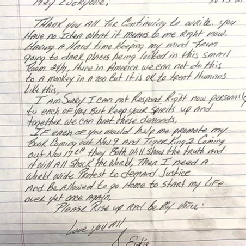 Thank you all for continuing to write. you
have no idea what it means to me right now.
Having a hard time keeping my mind from
going to dark places being locked in this small
Room 24/7, there in America we can not do this
to a monkey in a zoo but it is ok to treat humans
like this.
I am sorry I can not respond right now personally
to each of you. But keep your spirits up and
together we can beat these demons.
If each of you would help me promote my
Book coming out Nov 9 and Tiger King 2 coming
out Nov 17th they both will show the truth and
it will all shock the world. Then I need a
world wide protest to demand Justice
and be allowed to go home to start my life
over yet once again.
Please Rise up and be my voice.
Love you all